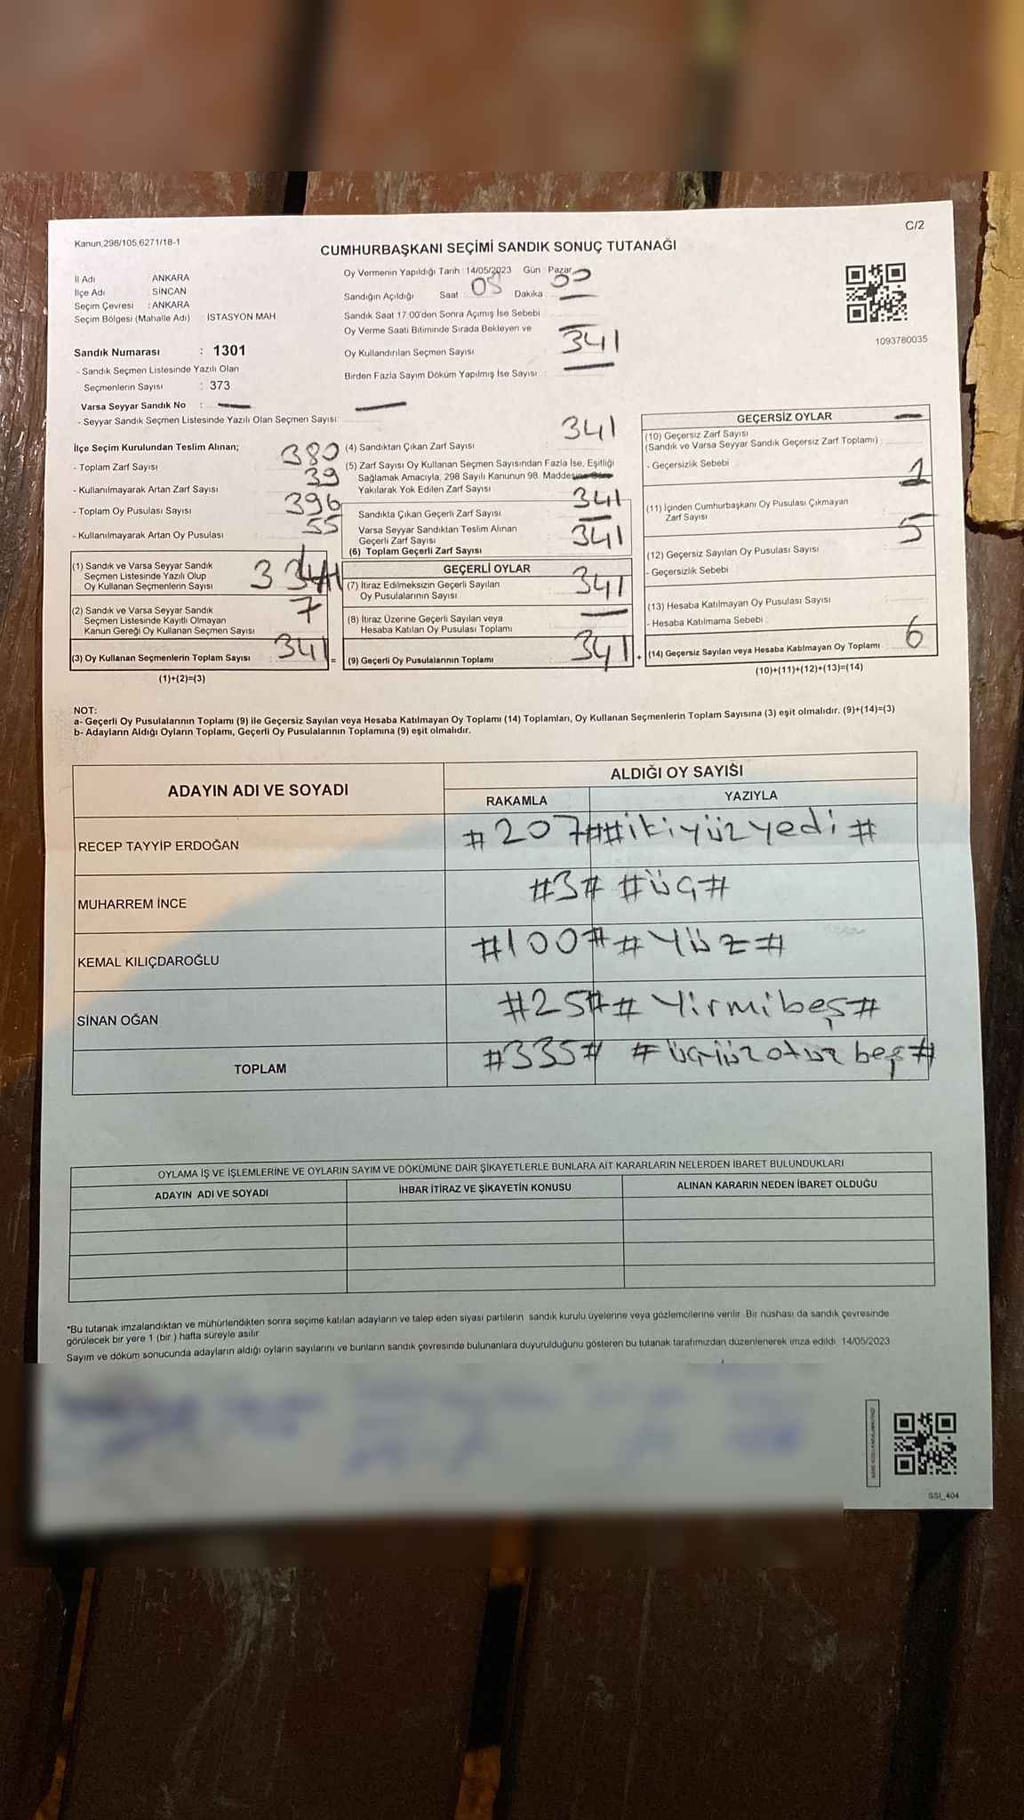 Kanun,298/105,6271/18-1
C/2
CUMHURBAŞKANI SEÇİMİ SANDIK SONUÇ TUTANAĞI
İl Adı ANKARA
İlçe Adı : SİNCAN
Seçim Çevresi : ANKARA
Seçim Bölgesi (Mahalle Adı) İSTASYON MAH
Sandık Numarası : 1301
- Sandık Seçmen Listesinde Yazılı Olan
Seçmenlerin Sayısı : 373
Varsa Seyyar Sandık No :
- Seyyar Sandık Seçmen Listesinde Yazılı Olan Seçmen Sayısı
Oy Vermenin Yapıldığı Tarih 14/05/2023 Gün Pazar
Sandığın Açıldığı Saat 05 Dakika 00
Sandık Saat 17:00'den Sonra Açımış İse Sebebi
Oy Verme Saati Bitiminde Sırada Bekleyen ve
Oy Kullandırılan Seçmen Sayısı 341
Birden Fazla Sayım Döküm Yapılmış İse Sayısı
1093780035
İlçe Seçim Kurulundan Teslim Alınan;
- Toplam Zarf Sayısı 380
- Kullanılmayarak Artan Zarf Sayısı 39
- Toplam Oy Pusulası Sayısı 396
- Kullanılmayarak Artan Oy Pusulası 55
(1) Sandık ve Varsa Seyyar Sandık
Seçmen Listesinde Yazılı Olup
Oy Kullanan Seçmenlerin Sayısı
(2) Sandık ve Varsa Seyyar Sandık
Seçmen Listesinde Kayıtlı Olmayan
Kanun Gereği Oy Kullanan Seçmen Sayısı 7
(3) Oy Kullanan Seçmenlerin Toplam Sayısı 341 =
(1)+(2)=(3)
(4) Sandıktan Çıkan Zarf Sayısı 341
(5) Zarf Sayısı Oy Kullanan Seçmen Sayısından Fazla İse, Eşitliği
Sağlamak Amacıyla, 298 Sayılı Kanunun 98. Maddesine Göre
Yakılarak Yok Edilen Zarf Sayısı
Sandıkta Çıkan Geçerli Zarf Sayısı 341
Varsa Seyyar Sandıktan Teslim Alınan
Geçerli Zarf Sayısı
(6) Toplam Geçerli Zarf Sayısı 341
GEÇERLİ OYLAR
(7) İtiraz Edilmeksizin Geçerli Sayılan
Oy Pusulalarının Sayısı 341
(8) İtiraz Üzerine Geçerli Sayılan veya
Hesaba Katılan Oy Pusulası Toplamı
(9) Geçerli Oy Pusulalarının Toplamı 341
GEÇERSİZ OYLAR
(10) Geçersiz Zarf Sayısı
(Sandık ve Varsa Seyyar Sandık Geçersiz Zarf Toplamı)
- Geçersizlik Sebebi 1
(11) İçinden Cumhurbaşkanı Oy Pusulası Çıkmayan
Zarf Sayısı
5
(12) Geçersiz Sayılan Oy Pusulası Sayısı
- Geçersizlik Sebebi
(13) Hesaba Katılmayan Oy Pusulası Sayısı
- Hesaba Katılmama Sebebi
(14) Geçersiz Sayılan veya Hesaba Katılmayan Oy Toplamı 6
(10)+(11)+(12)+(13)=(14)
NOT:
a- Geçerli Oy Pusulalarının Toplamı (9) ile Geçersiz Sayılan veya Hesaba Katılmayan Oy Toplamı (14) Toplamları, Oy Kullanan Seçmenlerin Toplam Sayısına (3) eşit olmalıdır. (9)+(14)=(3)
b- Adayların Aldığı Oyların Toplamı, Geçerli Oy Pusulalarının Toplamına (9) eşit olmalıdır.
ADAYIN ADI VE SOYADI
ALDIĞI OY SAYISI
RAKAMLA YAZIYLA
RECEP TAYYİP ERDOĞAN #207# #ikiyüzyedi#
MUHARREM İNCE #3# #üç#
KEMAL KILIÇDAROĞLU #100# #Yüz#
SİNAN OĞAN #25# #Yirmibeş#
TOPLAM #335# #üçyüzotuzbeş#
OYLAMA İŞ VE İŞLEMLERİNE VE OYLARIN SAYIM VE DÖKÜMÜNE DAİR ŞİKAYETLERLE BUNLARA AİT KARARLARIN NELERDEN İBARET BULUNDUKLARI
ADAYIN ADI VE SOYADI İHBAR İTİRAZ VE ŞİKAYETİN KONUSU ALINAN KARARIN NEDEN İBARET OLDUĞU
*Bu tutanak imzalandıktan ve mühürlendikten sonra seçime katılan adayların ve talep eden siyasi partilerin sandık kurulu üyelerine veya gözlemcilerine verilir. Bir nüshası da sandık çevresinde
görülecek bir yere 1 (bir ) hafta süreyle asılır
Sayım ve döküm sonucunda adayların aldığı oyların sayılarını ve bunların sandık çevresinde bulunanlara duyurulduğunu gösteren bu tutanak tarafımızdan düzenlenerek imza edildi. 14/05/2023
SSI_404